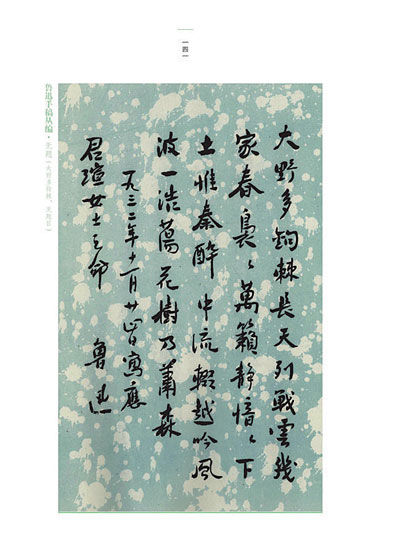 一四一
鲁迅手稿丛编·无题（大野多钩棘，
大野多鉤棘長天列戰雲幾
家春裊々萬籟靜愔々下
土惟秦醉中流輟越吟風
波一浩蕩花樹乃蕭森
一九三二年十一月廿四日寫應
君瑄女士之命 魯迅